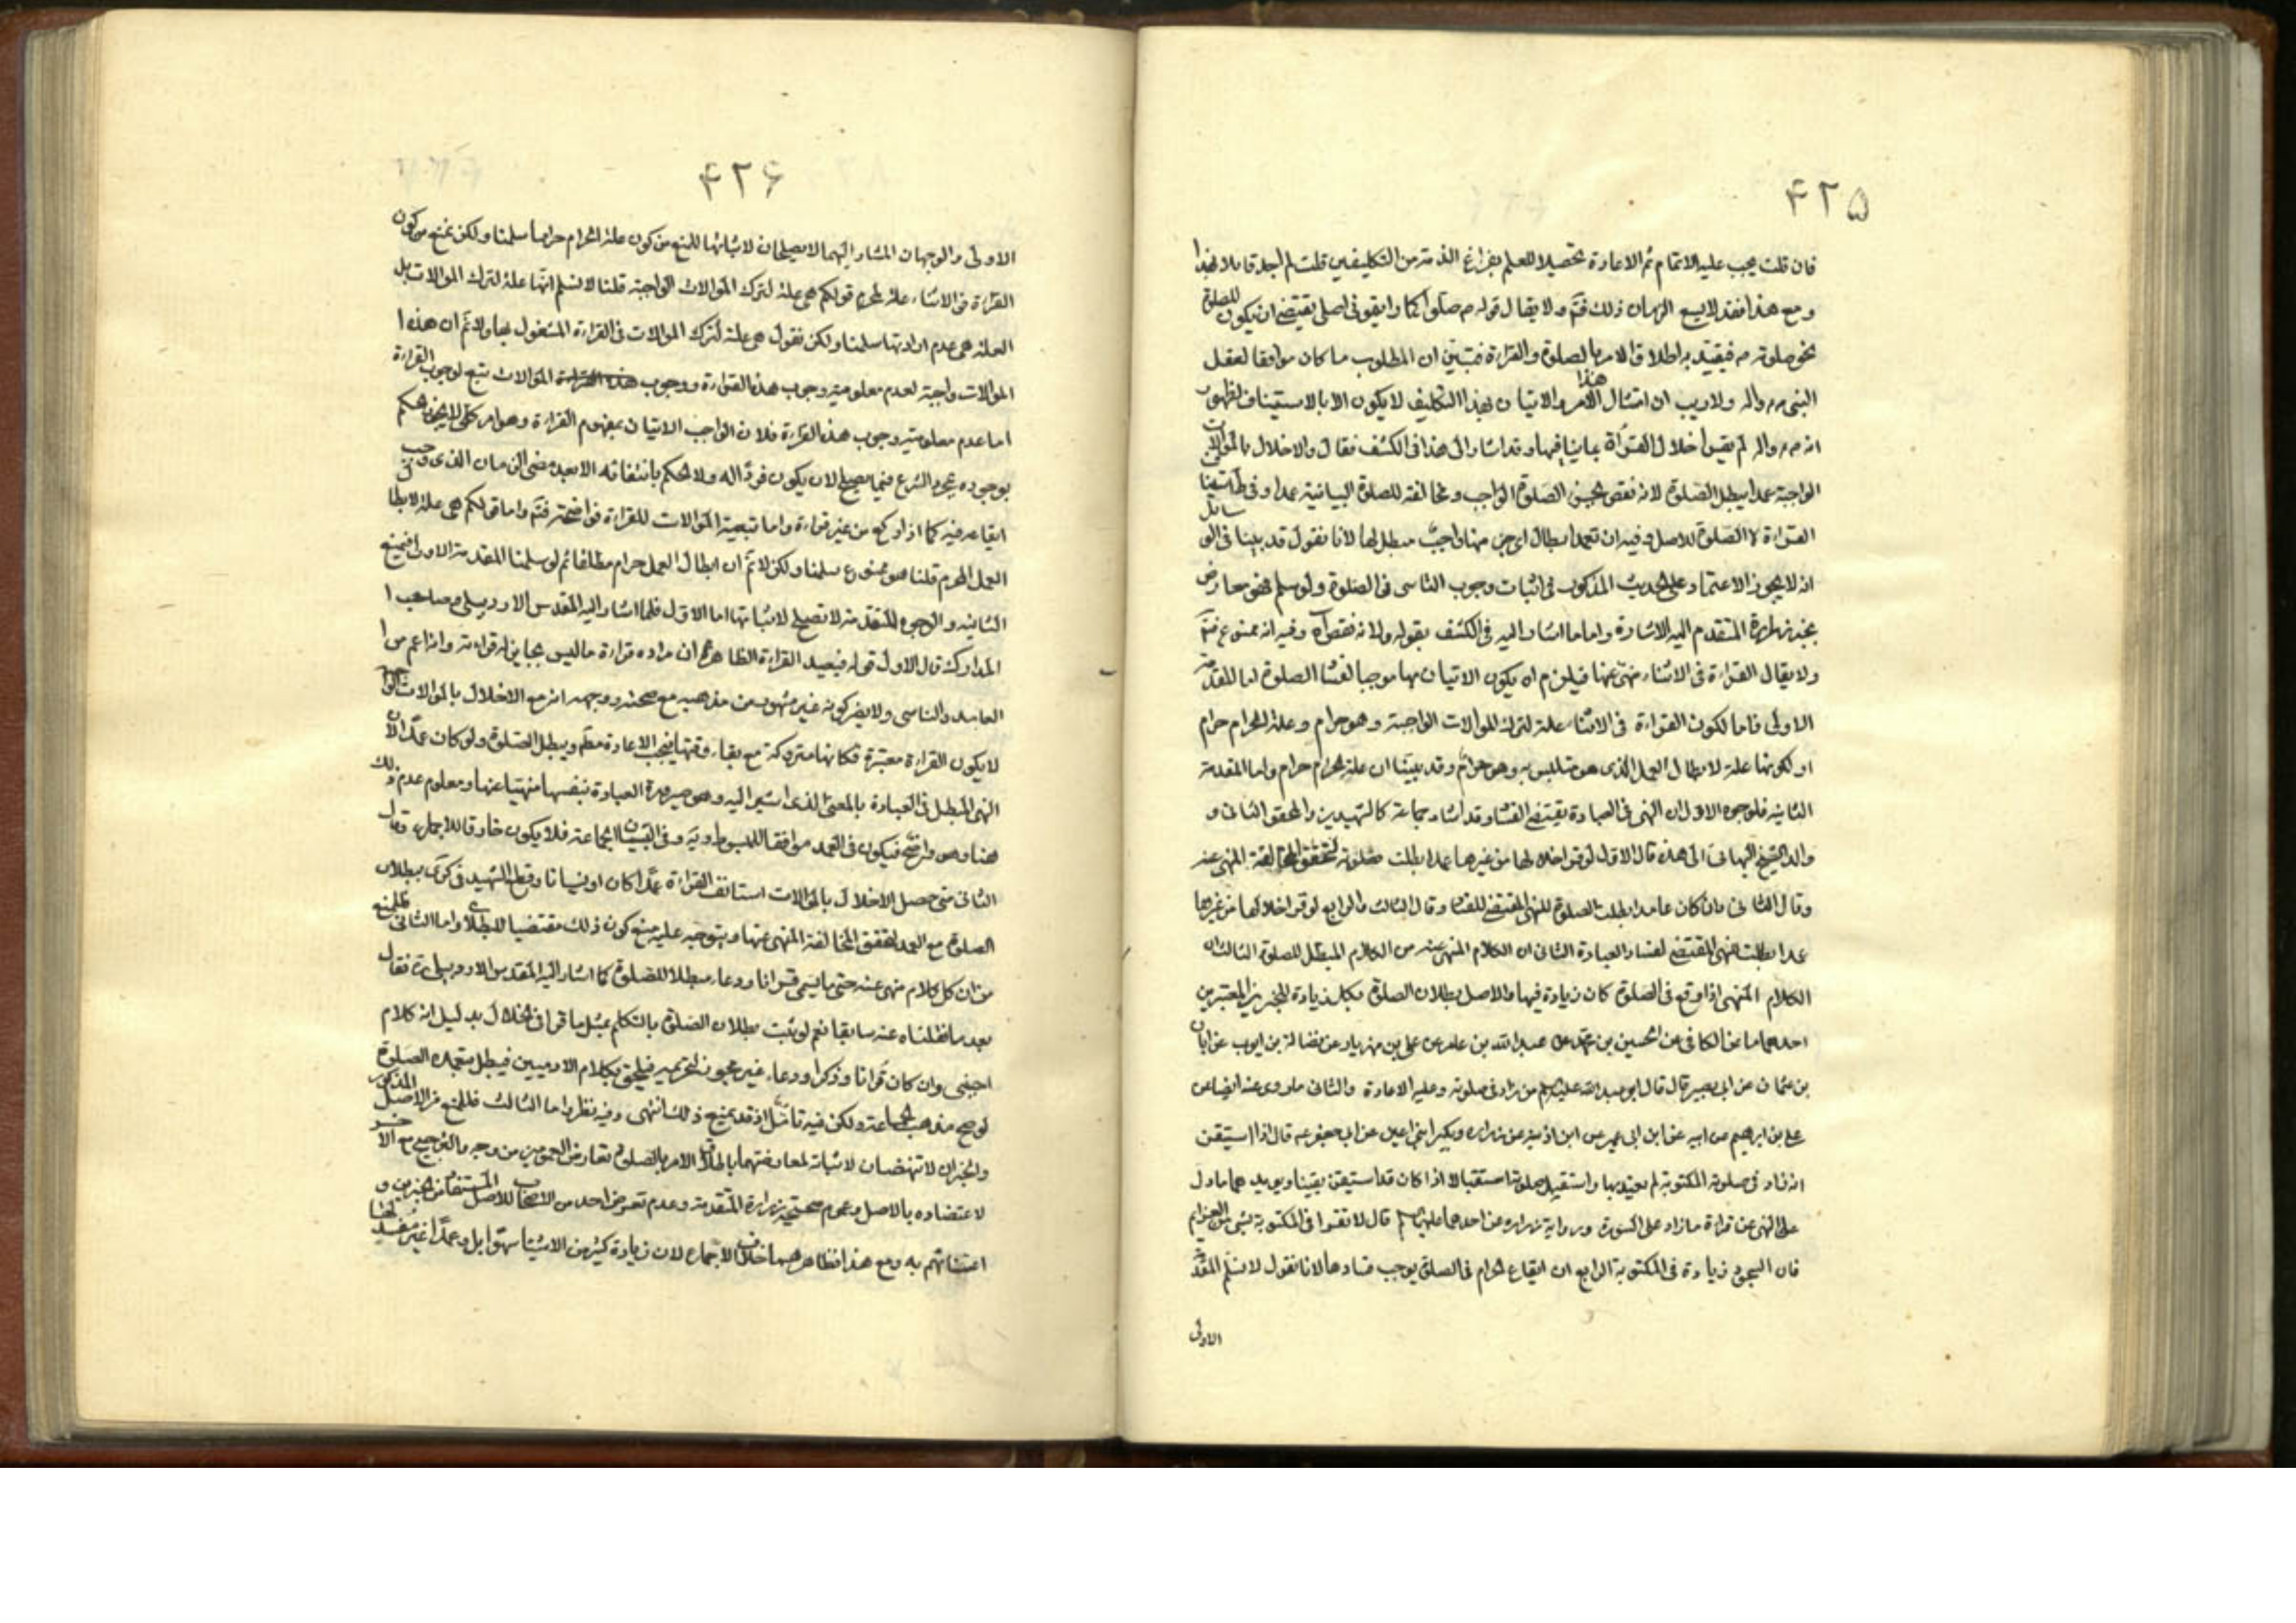 ۴۲۵
فان قلت يجب عليه الاتمام ثم الاعادة تحصيلا للعلم بفراغ الذمة من التكليفين قلت لم اجد قائلا بهذا
ومع هذا فقد لا يسع الزمان ذلك فتم ولا يقال قوله ص صلوا كما رايتموني اصلي يقتضي ان يكون للصلوة
نحو صلوته ص فيقيد به اطلاق الامر بالصلوة والقراءة فتبين ان المطلوب ما كان موافقا لفعل
النبي ص واله ولا ريب ان امتثال هذا الامر والاتيان بهذا التكليف لا يكون الا بالاستيناف لظهور
انه ص واله لم يقرأ خلال القراءة بما ينافيها وقد اشار الى هذا في الكشف فقال والاخلال بالموالات
الواجبة عمدا يبطل الصلوة لانه نقص لجزء الصلوة الواجب ومخالفة للصلوة البيانية عمدا وفى استيناف
القراءة لا الصلوة للاصل وفيه ان تعمد ابطال اي جزء منها واجب مبطل لها لانا نقول قد بينا في الوسائل
انه لا يجوز الاعتماد على الحديث المذكور في اثبات وجوب التاسي في الصلوة ولو سلم فهو معارض
بخبر زرارة المتقدم اليه الاشارة واما ما اشار اليه في الكشف بقوله ولانه نقص اه وفيه انه ممنوع فتم
ولا يقال القراءة في الاثناء منهي عنها فيلزم ان يكون الاتيان بها موجبا لفساد الصلوة اما المقدمة
الاولى فاما لكون القراءة في الاثناء علة لترك الموالات الواجبة وهو حرام وعلة الحرام حرام
او لكونها علة لابطال العمل الذى هو متلبس به وهو حرام وقد بينا ان علة الحرام حرام واما المقدمة
الثانية فلوجوه الاول ان النهى في العبادة يقتضي الفساد وقد اشار جماعة كالشهيدين والمحقق الثاني و
والد الشيخ البهائي الى هذه قال الاول لو قرا خلالها من غيرها عمدا بطلت صلوته لتحقق المخالفة المنهي عنه
وقال الثاني وان كان عامدا بطلت الصلوة للنهى المقتضي للفساد وقال الثالث والرابع لو قرا خلالها من غيرها
عمدا بطلت للنهى المقتضي لفساد العبادة الثاني ان الكلام المنهي عنه من الكلام المبطل للصلوة الثالث ان
الكلام المنهى اذا وقع في الصلوة كان زيادة فيها والاصل بطلان الصلوة بكل زيادة للخبرين المعتبرين
احدهما ما عن الكافي عن الحسين بن محمد عن عبد الله بن عامر عن علي بن مهزيار عن فضالة بن ايوب عن ابان
بن عثمان عن ابي بصير قال قال ابو عبد الله عليه السلام من زاد في صلوته وعليه الاعادة والثاني ما روى عنه ايضا عن
علي بن ابراهيم عن ابيه عن ابن ابي عمير عن ابن اذينة عن زرارة وبكير ابني اعين عن ابي جعفر عه قال اذا استيقن
انه زاد في صلوته المكتوبة لم يعتد بها واستقبل صلوته استقبالا اذا كان قد استيقن يقينا ويويدهما ما دل
على النهى عن قراءة ما زاد على السورة ورواية زرارة عن احدهما عليهما السلام قال لا تقرا في المكتوبة بشئ من العزائم
فان السجود زيادة في المكتوبة الرابع ان ايقاع الحرام في الصلوة يوجب فسادها لانا نقول لا نسلم المقدمة
الاولى
۴۲۶
الاولى والوجهان المشار اليهما لا يصلحان لاثباتها للمنع من كون علة الحرام حراما سلمنا ولكن نمنع من كون
القراءة في الاثناء علة للحرام قولكم هي علة لترك الموالات الواجبة قلنا لا نسلم انها علة لترك الموالات بل
العلة هي عدم ارادتها سلمنا ولكن نقول هي علة لترك الموالات في القراءة المشغول بها ولا نم ان هذه ا
الموالات واجبة لعدم معلومية وجوب هذه القراءة ووجوب الموالات تبع لوجوب القراءة
اما عدم معلومية وجوب هذه القراءة فلان الواجب الاتيان بمفهوم القراءة وهو امر كلي لا يحكم
بوجوده الشرع فيما يصلح لان يكون فردا له ولا يحكم بانتفائه الا بعد مضى الزمان الذى وجب
ايقاعه فيه كما اذا ركع من غير قراءة واما تبعية الموالات للقراءة فواضحة فتم واما قولكم هي علة لابطال
العمل المحرم قلنا هو ممنوع سلمنا ولكن لا نم ان ابطال العمل حرام مطلقا ثم لو سلمنا المقدمة الاولى فنمنع
الثانية والوجوه المتقدمة لا تصلح لاثباتها اما الاول فلما اشار اليه المقدس الاردبيلي وصاحب ا
المدارك قال الاول قوله فيعيد القراءة الظاهر ان مراده قراءة ما ليس بجايز له قراءته وانه اعم من ا
العامد والناسى ولا يضر كونه غير مشهور من مذهبه مع صحته ووجهه انه مع الاخلال بالموالات
لا يكون القراءة معتبرة فكانها متروكة مع بقاء وقتها فيجب الاعادة مطم ويبطل الصلوة ولو كان عمدا لان
النهي المبطل في العبادة بالمعنى الذى اشير اليه وهو صيرورة العبادة بنفسها منهيا عنها ومعلوم عدم ذلك
هنا وهو واضح فيكون في العمد موافقا للمبسوط وية وفي النسيان الجماعة فلا يكون خارقا للاجماع وقال
الثاني متى حصل الاخلال بالموالات استانف القراءة عمدا كان او نسيانا وقطع الشهيد في كرى ببطلان
الصلوة مع العمد لتحقق المخالفة المنهى عنها ويتوجه عليه منع كون ذلك مقتضيا للبطلان واما الثاني فللمنع
من ان كل كلام منهى عنه حتى ما يسمى قرانا ودعاء مبطلا للصلوة كما اشار اليه المقدس الاردبيلي ره فقال
بعد ما نقلناه عنه سابقا نعم لو ثبت بطلان الصلوة بالتكلم بمثل ما قرا في الخلال بدليل انه كلام
اجنبى وان كان قرانا وذكرا ودعاء غير مجوز لتحريمه فيلحق بكلام الادميين فيبطل متعمده الصلوة
لو صح مذهب الجماعة ولكن فيه تامل اذ قد يمنع ذلك انتهى وفيه نظر واما الثالث فللمنع من الاصل المذكور
والخبران لا تنهضان لاثباته لمعارضتهما باطلاق الامر بالصلوة تعارض العمومين من وجه والترجيح مع الاخر
لاعتضاده بالاصل وعموم صحيحة زرارة المتقدمة وعدم تعرض احد من الاصحاب للاصل المستفاد من الخبرين و
اعتنائهم به ومع هذا فظاهرهما خلاف الاجماع لان زيادة كثير من الاشياء سهوا بل وعمدا غير مفسد